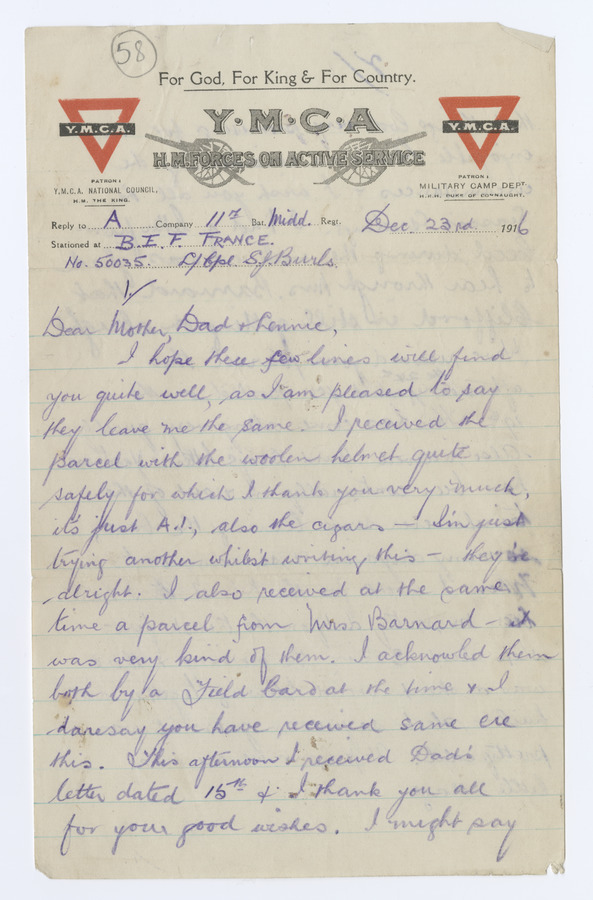 58
For God, For King & For Country.
Y.M.C.A.
Y·M·C·A
Y.M.C.A.
H.M. FORCES ON ACTIVE SERVICE
PATRON:
Y.M.C.A. NATIONAL COUNCIL.
H.M. THE KING.
PATRON:
MILITARY CAMP DEPT.
H.R.H. DUKE OF CONNAUGHT.
Reply to A Company 11th Bat. Midd. Regt. Dec 23rd 1916
Stationed at B.E.F. FRANCE.
No. 50035. L/Cpl S.J. Burls
1/
Dear Mother, Dad & Lennie,
I hope these few lines will find
you quite well, as I am pleased to say
they leave me the same. I received the
parcel with the woolen helmet quite
safely for which I thank you very much,
it's just A.1., also the cigars — I'm just
trying another whilst writing this — they're
alright. I also received at the same
time a parcel from Mrs Barnard — it
was very kind of them. I acknowled them
both by a Field Card at the time & I
daresay you have received same ere
this. This afternoon I received Dad's
letter dated 15th & I thank you all
for your good wishes. I might say